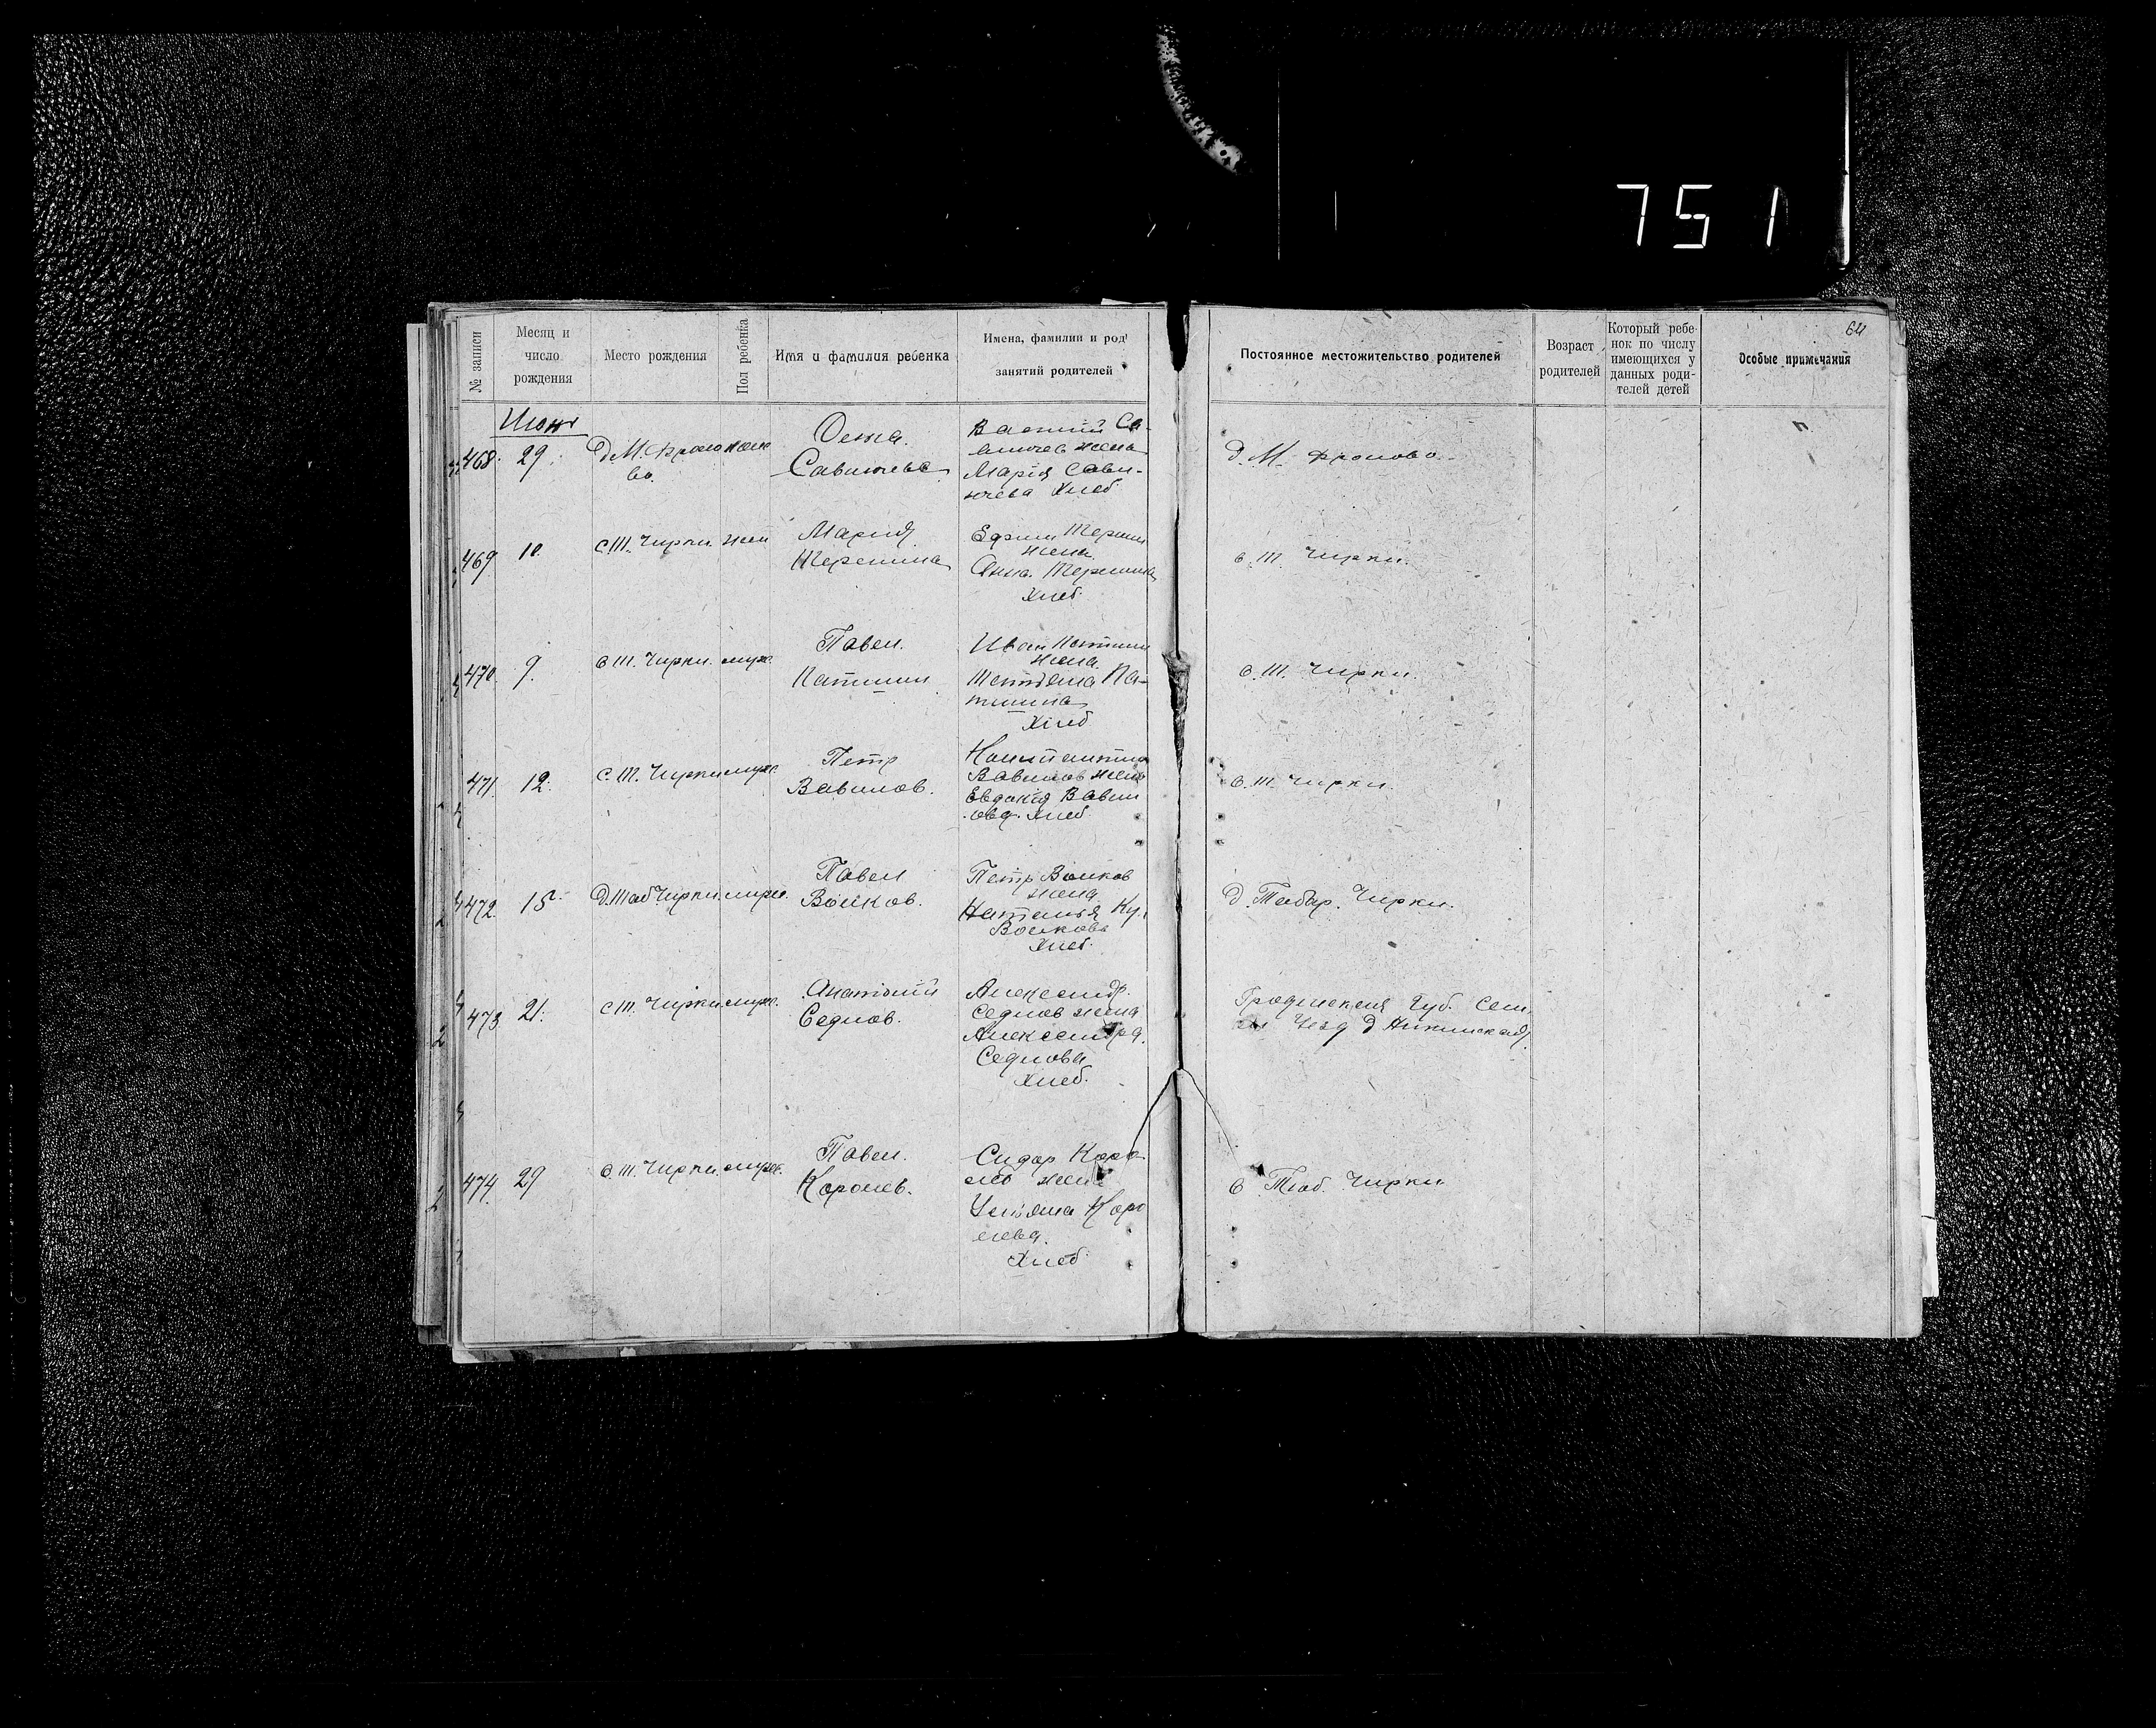 751
64
№ записи
Месяц и число рождения
Место рождения
Пол ребенка
Имя и фамилия ребенка
Имена, фамилии и род занятий родителей
Постоянное местожительство родителей
Возраст родителей
Который ребенок по числу имеющихся у данных родителей детей
Особые примечания
468. 29.
Савичева
жена
Мария Сави-
Хлеб.
д. М. Фролово.
469 10. с. Т. Чирки. жен
Мария
Терешина
Ефим Терешин
жена
Анна Терешина
Хлеб.
с. Т. Чирки.
470. 9. с. Т. Чирки. муж.
Павел.
Патшин
Иван Патшин
жена
Татьяна Па-
тшина
Хлеб
с. Т. Чирки.
471. 12. с. Т. Чирки муж.
Петр
Вавилов.
Вавилов жена
Евдокия Вавил
ова. Хлеб.
с. Т. Чирки.
472. 15 д. Таб Чирки. муж.
Павел
Волков.
Петр Волков
жена
Наталья
Волкова
Хлеб.
д. Табар. Чирки.
473 21. с. Т. Чирки муж.
Анатолий
Седлов.
Александр.
Седлов жена
Александра.
Седлова
Хлеб.
Гродненская Губ.
Уезд д
474. 29 с. Т. Чирки. муж.
Павел.
Королев.
Сидор Коро
лев жена
Ульяна Коро
лева.
Хлеб
с Таб. Чирки